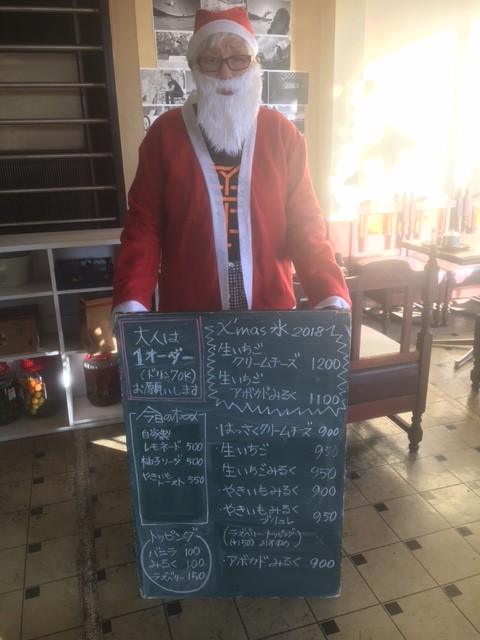 大人は
1オーダー
(ドリンクOK)
お願いします
X'mas氷 2018
生いちご
クリームチーズ 1200
生いちご
アボカドみるく 1100
今日のオススメ
自家製
レモネード 500
柚子ソーダ 500
トースト 550
トッピング
バニラ 100
みるく 100
ラズベリー 150
・はっさくクリームチーズ 900
・生いちご 950
・生いちごみるく 950
・やきいもみるく 900
・やきいもみるく
ブリュレ 950
(ラズベリートッピング
(¥150) おすすめ)
・アボカドみるく 900